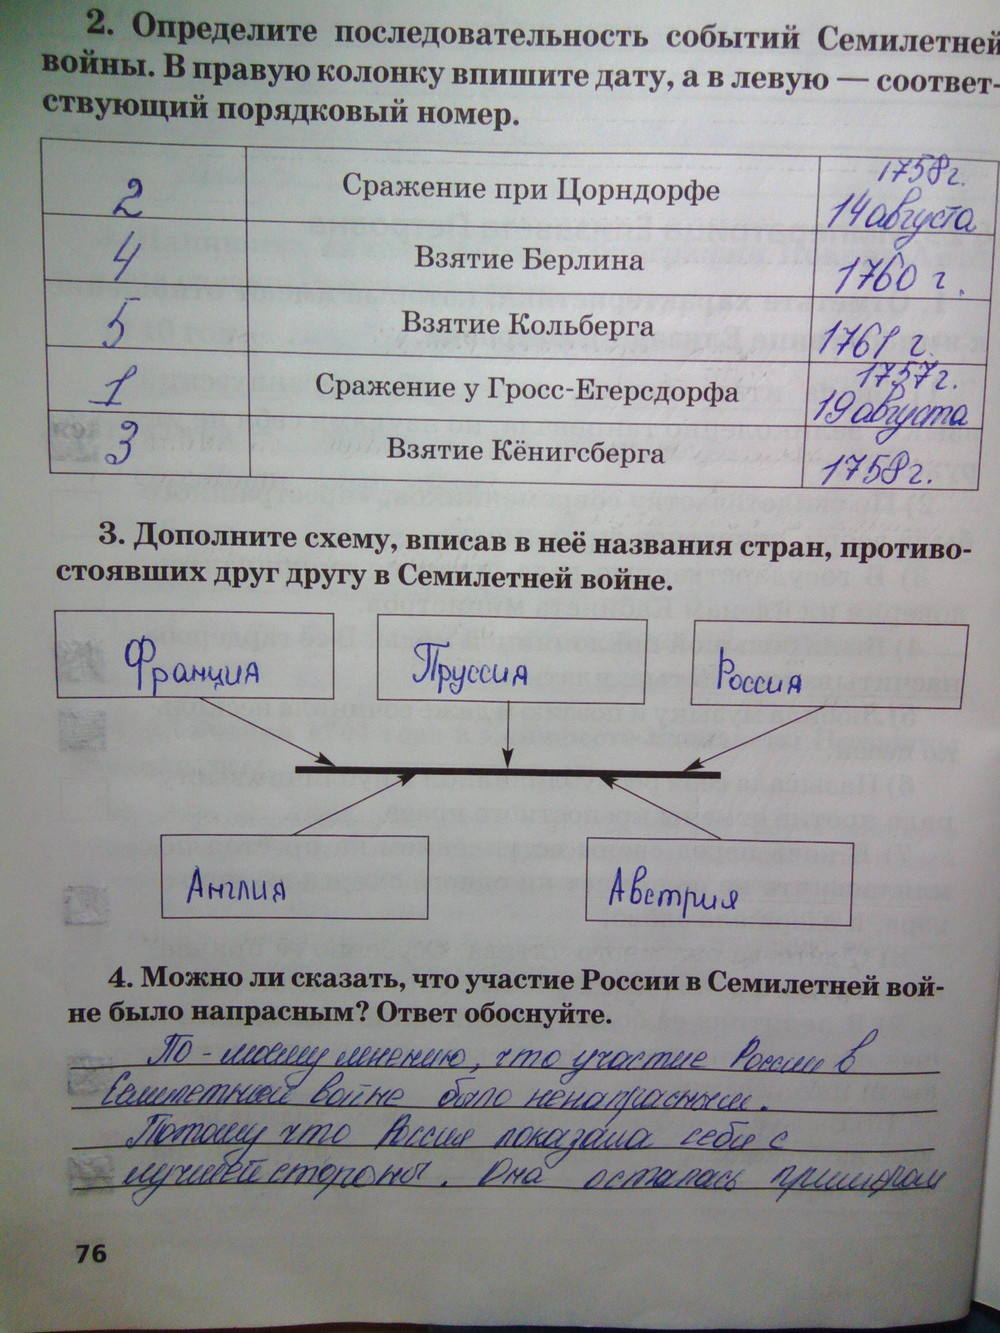 2. Определите последовательность событий Семилетней
войны. В правую колонку впишите дату, а в левую — соответ-
ствующий порядковый номер.
2 Сражение при Цорндорфе 1758г. 14 августа
4 Взятие Берлина 1760 г.
5 Взятие Кольберга 1761 г.
1 Сражение у Гросс-Егерсдорфа 1757г. 19 августа
3 Взятие Кёнигсберга 1758г.
3. Дополните схему, вписав в неё названия стран, противо-
стоявших друг другу в Семилетней войне.
Франция Пруссия Россия
Англия Австрия
4. Можно ли сказать, что участие России в Семилетней вой-
не было напрасным? Ответ обоснуйте.
По-моему мнению, что участие России в
Семилетней войне было ненапрасным.
Потому что Россия показала себя с
лучшей стороны. Она осталась примером
76